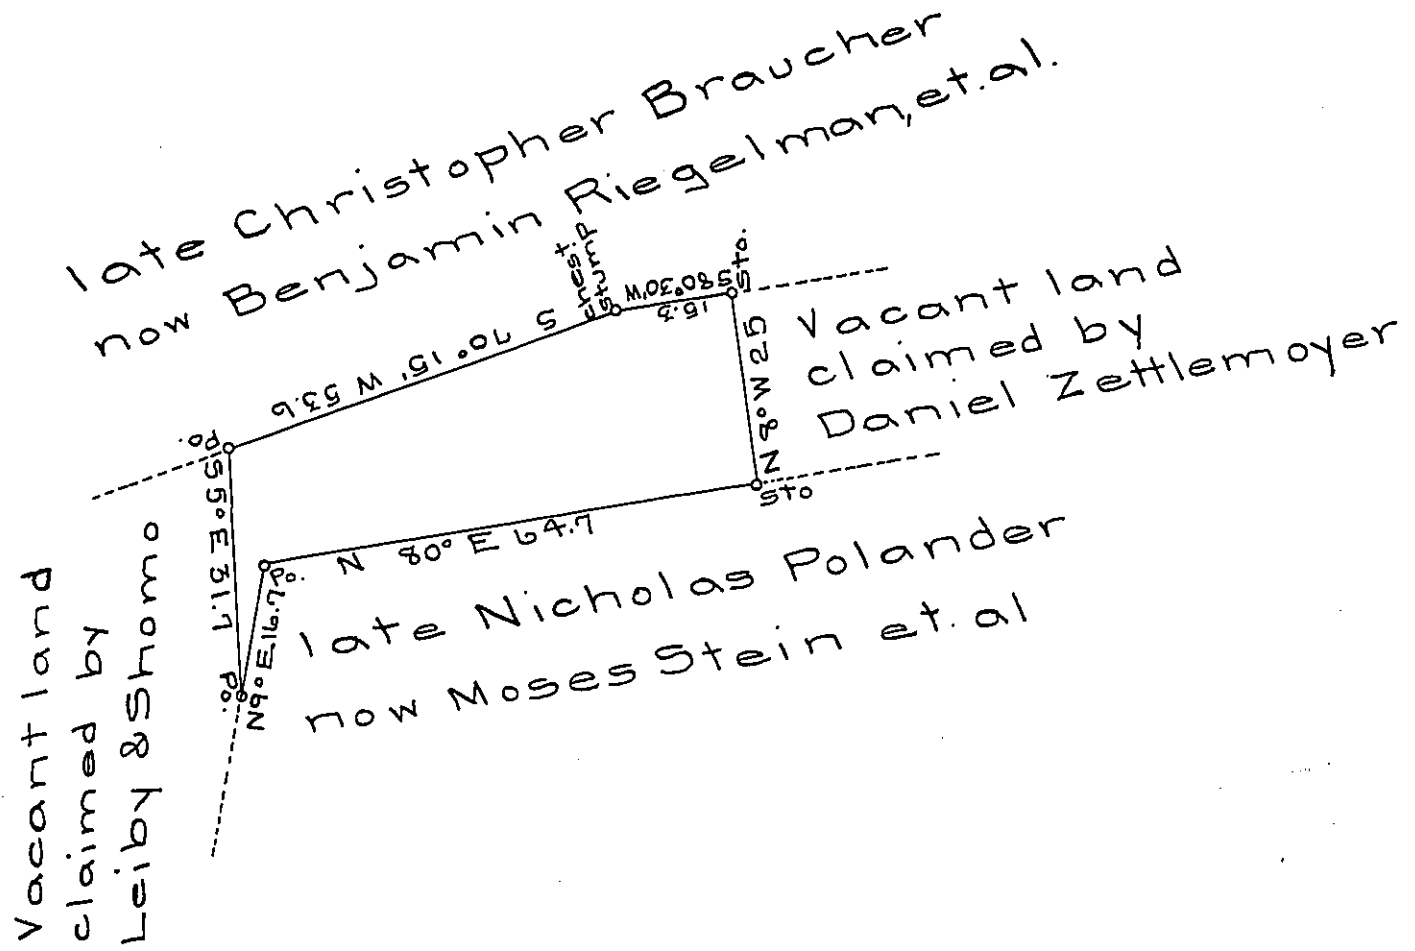 late Christopher Braucher
now Benjamin Riegelman, et. al.
Chest.
Stump
S 80° 30' W
15.3
Sto.
S 70° 15' W 53.6
N 8° W 25
Vacant land
claimed by
Daniel Zettlemoyer
Po.
S 5° E 31.7
Sto
N 80° E 64.7
Po.
N 9° E 16.7
Po.
late Nicholas Polander
now Moses Stein et. al
Vacant land
claimed by
Leiby & Shomo